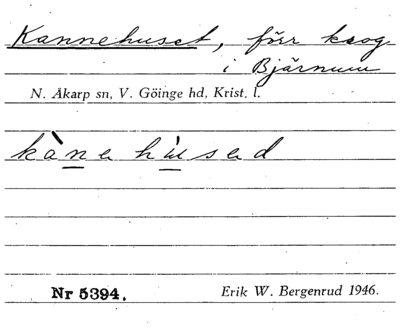 Kannehuset, förr krog
i Bjärnum
N. Åkarp sn, V. Göinge hd, Krist. l.
kànehùsed
Nr 5394.
Erik W. Bergenrud 1946.